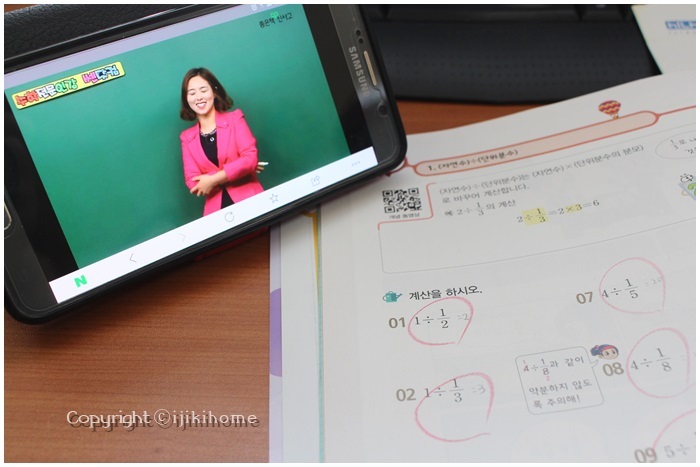 좋은책 신사고
SAMSUNG
N
1. (자연수)÷(단위분수)
(자연수)÷(단위분수)는 (자연수)×(단위분수의 분모)
로 바꾸어 계산합니다.
예 2÷1/3의 계산
2÷1/3=2×3=6
계산을 하시오.
01 1÷1/2 =2
07 4÷1/5
02 1÷1/3 =3
4÷1/8과 같이
약분하지 않도
록 주의해!
08 4÷1/8
09 5÷
Copyright ⓒijikihome